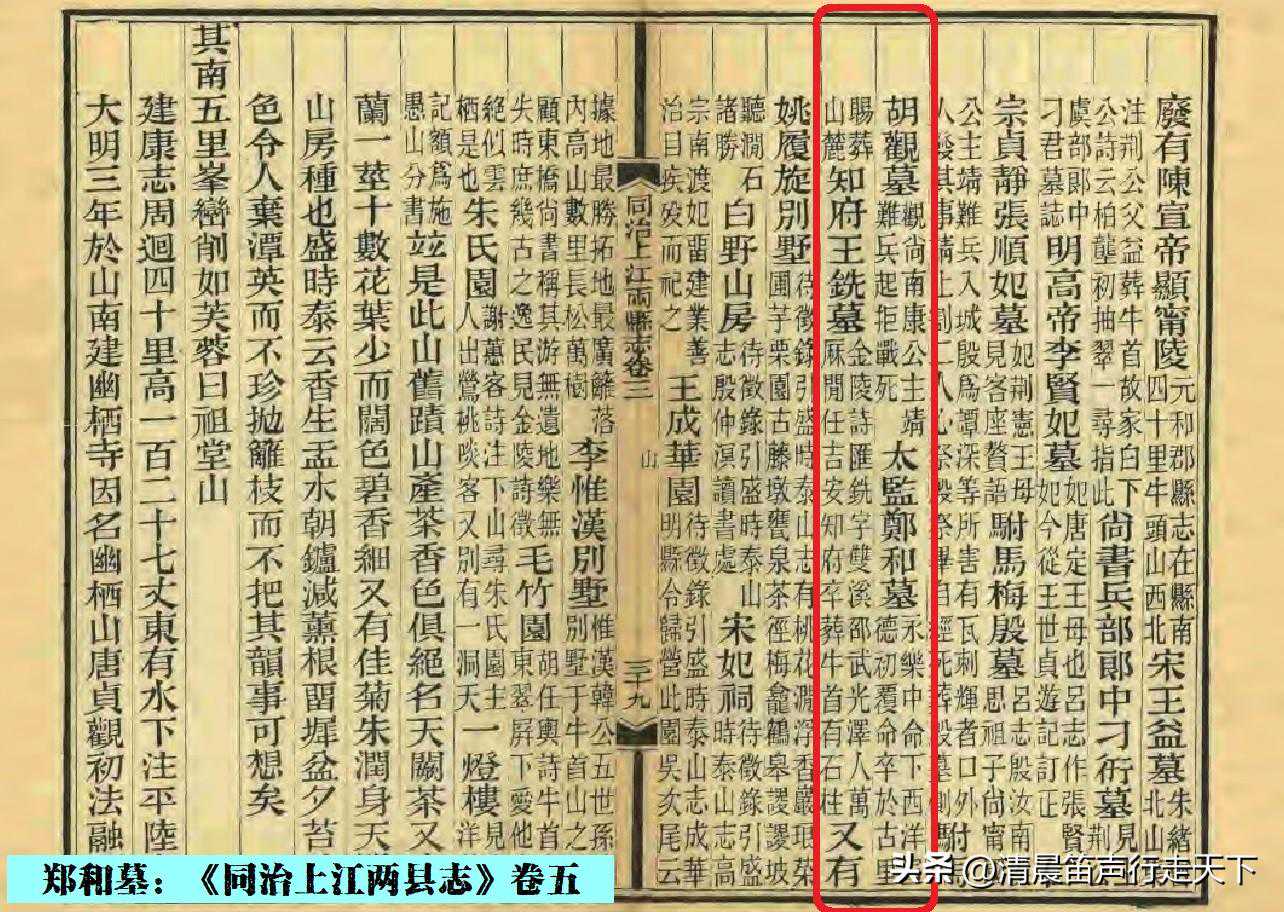 廢有陳宣帝顯甯陵元和郡縣志在縣南四十里牛頭山西北宋王益墓朱緒見北山
注荆公父益葬牛首故家白下公詩云柏壟初抽翠一尋指此尚書兵部郎中刁衎墓荆
虞部郎中刁君墓誌明高帝李賢妃墓妃唐定王母也呂志作張賢妃今從王世貞遊記訂正
宗貞靜張順妃墓妃荆憲王母見客座贅語駙馬梅殷墓呂志殷汝南思祖子尚甯
公主靖難兵入城殷爲譚深等所害有瓦剌輝者口外人發其事請上割二人心祭殷祭畢自經死葬殷墓側駙
胡觀墓觀尚南康公主靖難兵起拒戰死太監鄭和墓永樂中命下西洋德初覆命卒於古里
賜葬牛首山麓知府王銑墓金陵詩匯銑字雙溪邵武光澤人萬厤閒任吉安知府卒葬牛首有石柱又有
姚履旋別墅待徵錄引盛時泰山志有桃花澗浮香巖琅圃芋栗園古藤墩甕泉茶徑梅龕鶴皋謖謖坡
聽澗石諸勝白野山房待徵錄引盛時泰山志殷仲溟讀書處宋妃祠待徵錄引盛時泰山志高
宗南渡妃畱建業善治目疾歿而祀之王成華園待徵錄引盛時泰山志成華明縣令歸營此園吳次尾云
同治上江兩縣志卷三 山 三十九
據地最勝拓地最廣籬落內高山數里長松萬樹李惟漢別墅惟漢韓公五世孫別墅于牛首山之
顧東橋尚書稱其游無遺地樂無失時庶幾古之逸民見金陵詩徵毛竹園胡任輿詩牛首東翠屏下愛他
絕似雲棲是也朱氏園謝蕙客詩注下山尋朱氏園主人出鶯桃啖客又別有一洞天一燈樓見洋
記額爲施愚山分書竝是此山舊蹟山產茶香色俱絕名天闕茶又
蘭一莖十數花葉少而闊色碧香細又有佳菊朱潤身天
山房種也盛時泰云香生盂水朝鑪減薰根畱墀盆夕苔
色令人棄潭英而不珍拋籬枝而不把其韻事可想矣
其南五里峯巒削如芙蓉曰祖堂山
建康志周迴四十里高一百二十七丈東有水下注平陸
大明三年於山南建幽栖寺因名幽栖山唐貞觀初法融
郑和墓：《同治上江两县志》卷五
头条 @清晨笛声行走天下